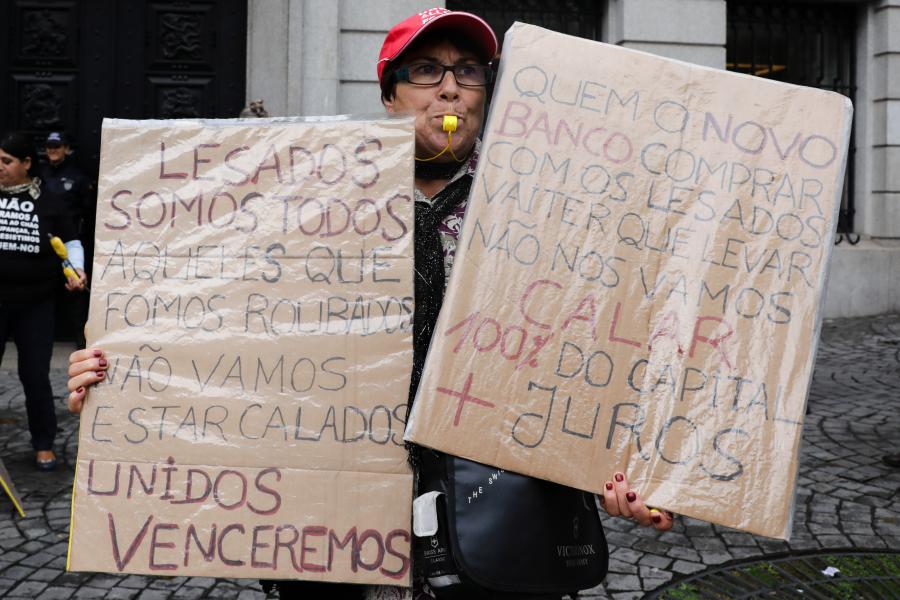 LESADOS
SOMOS TODOS
AQUELES QUE
FOMOS ROUBADOS
NÃO VAMOS
ESTAR CALADOS
UNIDOS
VENCEREMOS
QUEM O NOVO
BANCO COMPRAR
COM OS LESADOS
VAI TER QUE LEVAR
NÃO NOS VAMOS
CALAR
100% DO CAPITAL
+ JUROS
NÃO
AO CHÃO
THE SWISS
VICTORINOX